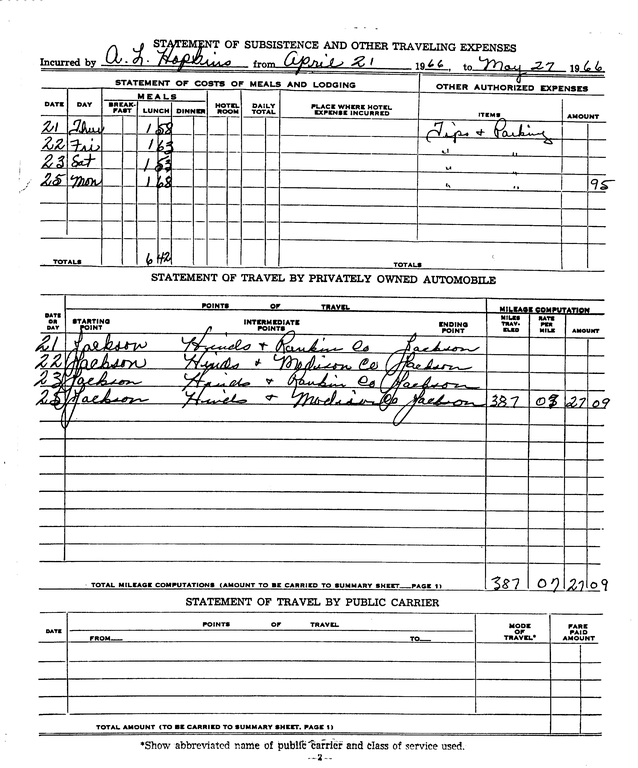 STATEMENT OF SUBSISTENCE AND OTHER TRAVELING EXPENSES
Incurred by A. L. Hopkins from April 21 1966, to May 27 1966
STATEMENT OF COSTS OF MEALS AND LODGING OTHER AUTHORIZED EXPENSES
DATE DAY MEALS BREAK-FAST LUNCH DINNER HOTEL ROOM DAILY TOTAL PLACE WHERE HOTEL EXPENSE INCURRED ITEMS AMOUNT
21 Thu 1 58 Tips & Parking
22 Fri 1 63 " "
23 Sat 1 53 " "
25 Mon 1 68 " " 95
TOTALS 6 42 TOTALS
STATEMENT OF TRAVEL BY PRIVATELY OWNED AUTOMOBILE
DATE OR DAY POINTS OF TRAVEL MILEAGE COMPUTATION
STARTING POINT INTERMEDIATE POINTS ENDING POINT MILES TRAV-ELED RATE PER MILE AMOUNT
21 Jackson Hinds & Rankin Co Jackson
22 Jackson Hinds & Madison Co Jackson
23 Jackson Hinds & Rankin Co Jackson
25 Jackson Hinds & Madison Co Jackson 387 27 09
TOTAL MILEAGE COMPUTATIONS (AMOUNT TO BE CARRIED TO SUMMARY SHEET__PAGE 1) 387 07 27 09
STATEMENT OF TRAVEL BY PUBLIC CARRIER
DATE POINTS OF TRAVEL MODE OF TRAVEL* FARE PAID AMOUNT
FROM__ TO__
TOTAL AMOUNT (TO BE CARRIED TO SUMMARY SHEET, PAGE 1)
*Show abbreviated name of public carrier and class of service used.
--2--